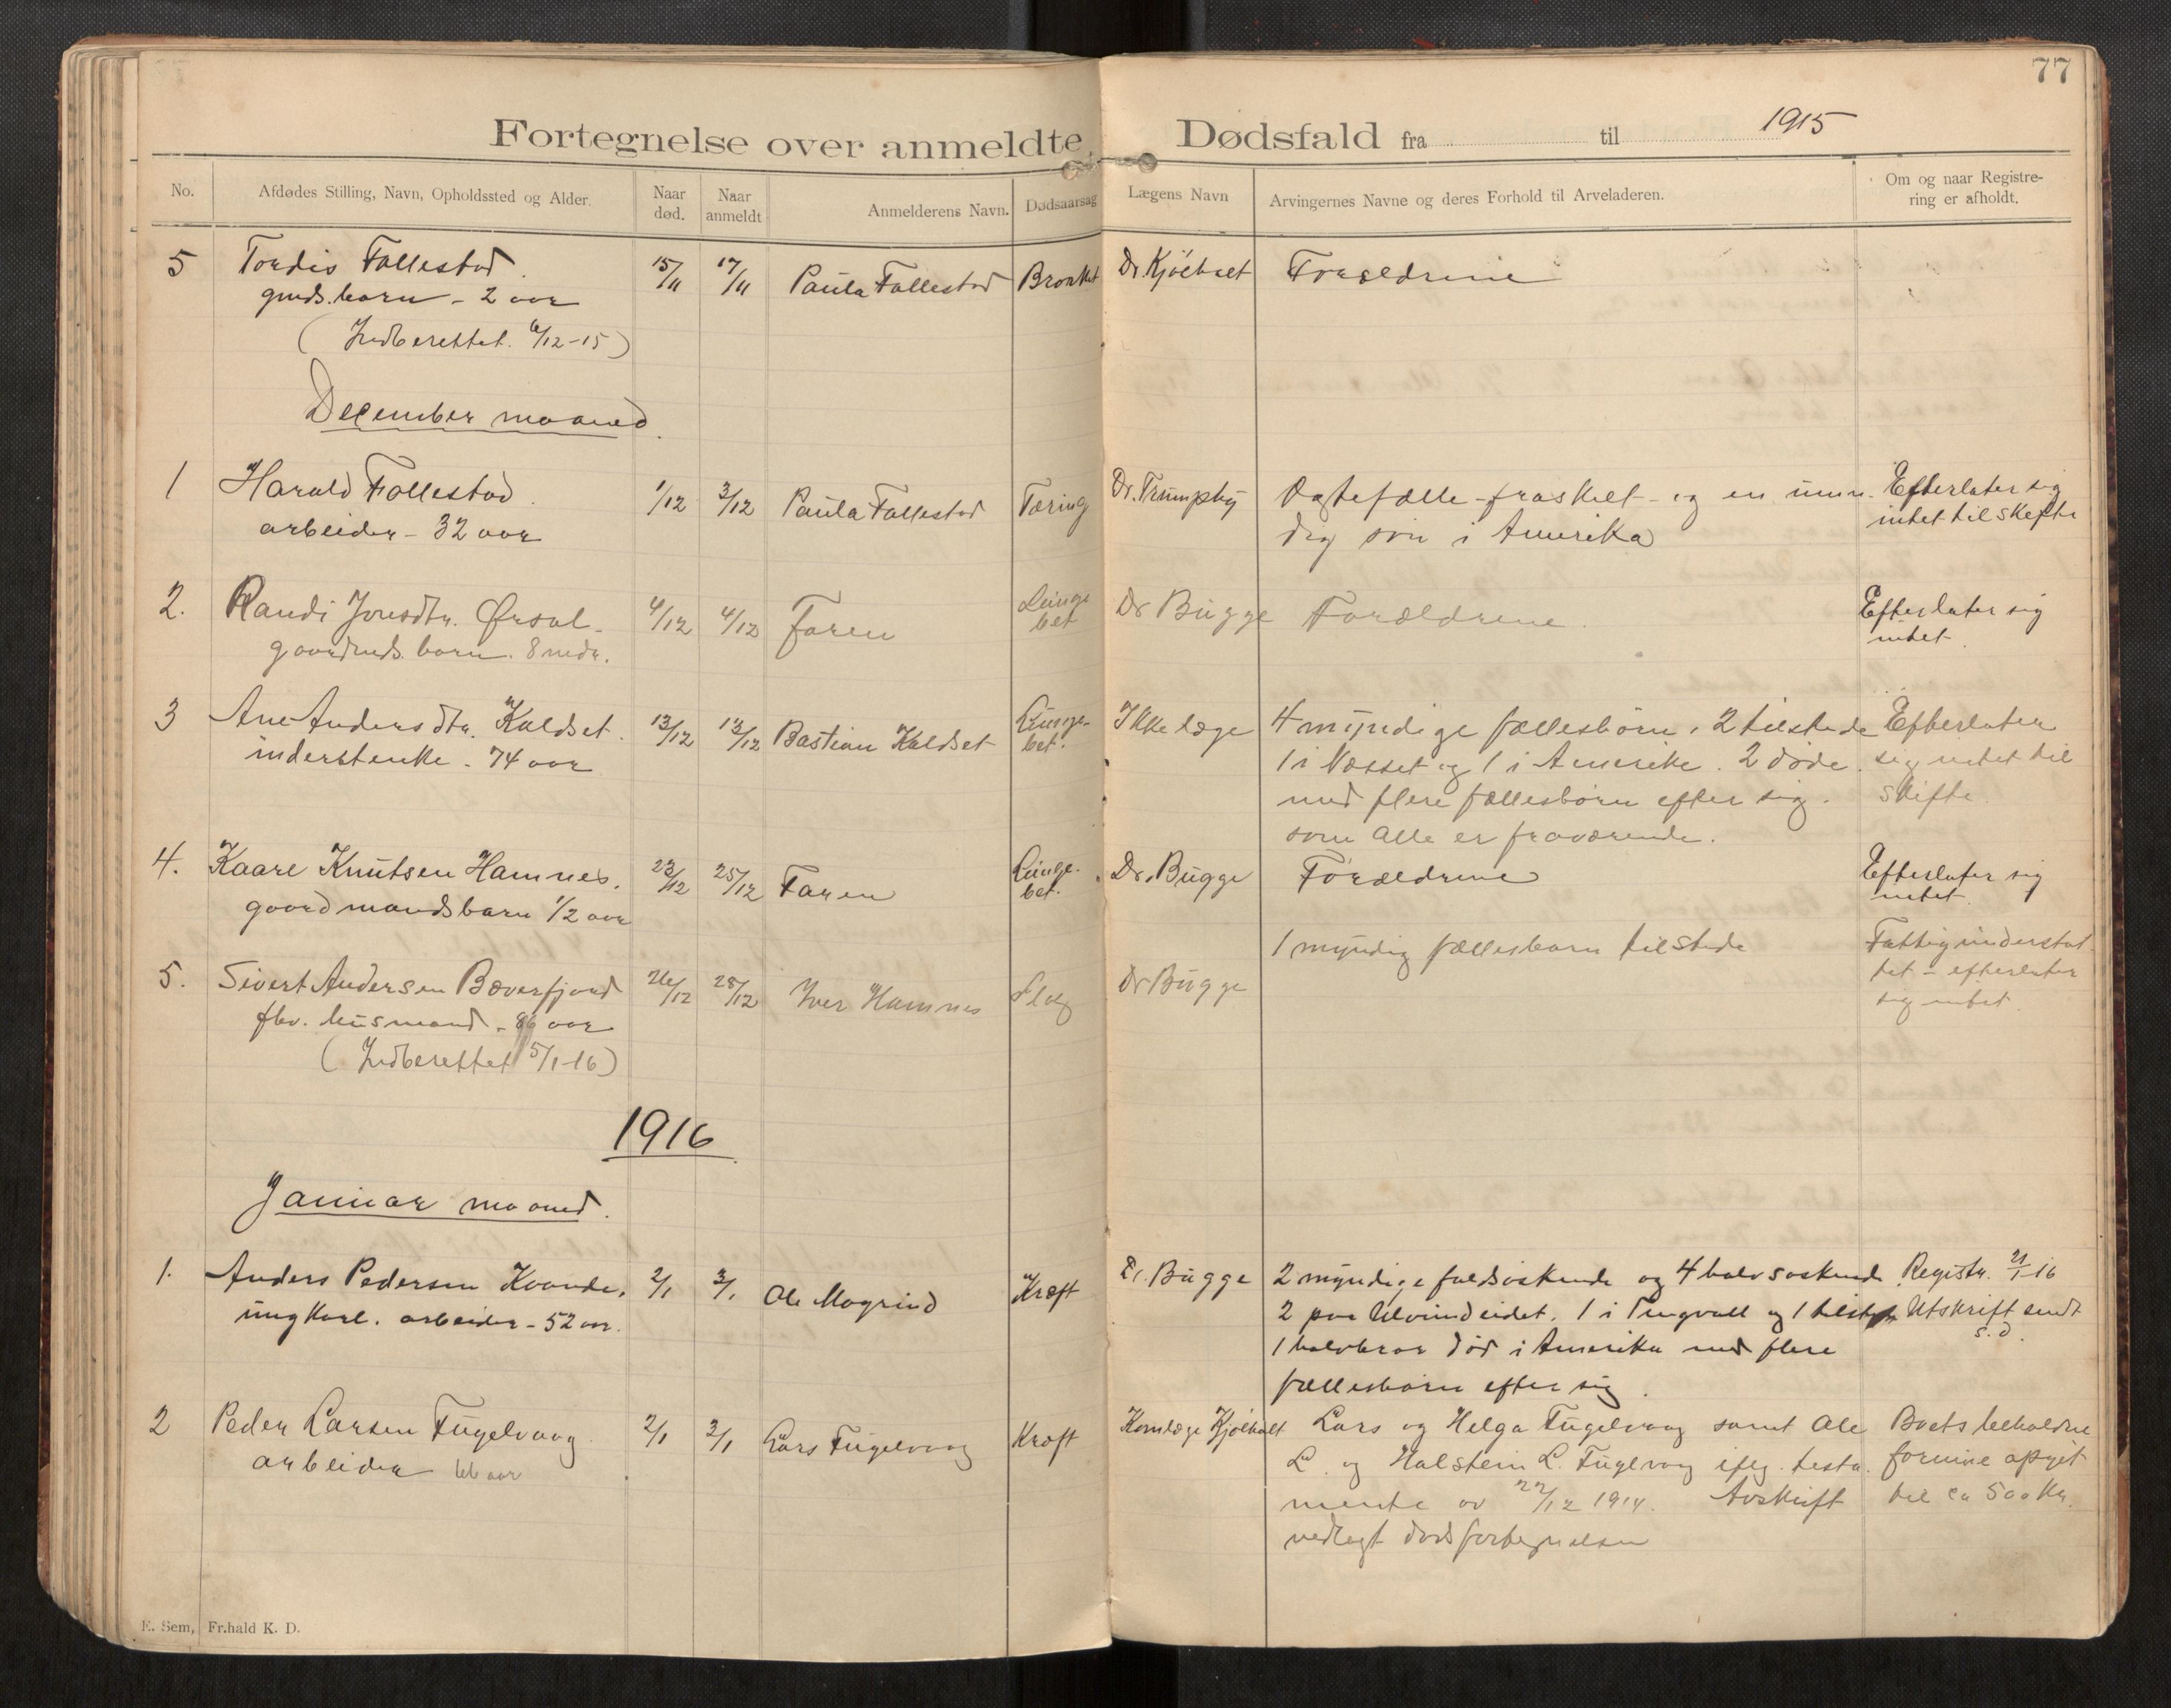 77
Fortegnelse over anmeldte Dødsfald fra til 1915
No. Afdødes Stilling, Navn, Opholdssted og Alder. Naar død. Naar anmeldt Anmelderens Navn. Dødsaarsag Lægens Navn Arvingernes Navne og deres Forhold til Arveladeren. Om og naar Registrering er afholdt.
5 Tordis Follestad 15/11 17/11 Paula Follestad Bronkit Dr. Kjölholt Forældrene
gmds. barn - 2 aar
(Indberettet. 6/12-15)
December maaned.
1 Harald Follestad. 1/12 3/12 Paula Follestad Tæring Dr. Trumphy Ægtefælle - fraskilt - og en umyn- Efterlater sig
arbeider - 32 aar dig søn i Amerika intet til skifte
2. Randi Jonsdtr. Ørsal- 4/12 4/12 Faren Lungebet Dr Bugge Forældrene. Efterlater sig
gaardmds. barn. 8 mdr. intet.
3 Ane Andersdtr. Kaldset. 13/12 13/12 Bastian Kaldset Lungebet. Ikke læge 4 myndige fællesbørn, 2 tilstede Efterlater
inderstenke - 74 aar 1 i Nesset og 1 i Amerika. 2 døde sig intet til
med flere fællesbørn efter sig. skifte.
som alle er fraværende.
4. Kaare Knutsen Hamnes. 23/12 25/12 Faren Lungebet. Dr. Bugge Forældrene Efterlater sig
gaardmandsbarn 1/2 aar intet.
1 myndig fællesbarn tilstede Fattigunderstøt-
5. Sivert Andersen Bæverfjord 26/12 28/12 Iver Hamnes Slag Dr Bugge tet - efterlater
fhv. husmand - 86 aar sig intet.
(Indberettet 5/1-16)
1916
Januar maaned.
1. Anders Pedersen Kvande, 2/1 3/1 Ole Mogrind Kræft Dr. Bugge 2 myndige helsøskende og 4 halvsøskende. Registr. 21/1-16
ungkarl. arbeider - 52 aar. 2 paa Ulvundeidet. 1 i Tingvoll og 1 Utskrift sendt
1 halvbror død i Amerika med flere s.d.
fællesbørn efter sig.
2 Peder Larsen Fugelvaag 2/1 3/1 Lars Fugelvaag Kræft Komlæge Kjölholt Lars og Helga Fugelvaag samt Ole Boets beholdne
arbeider 66 aar L. og Halstein L. Fugelvaag ifølg. testa- formue opgit
mente av 22/12 1914. Avskrift til ca 500 Kr.
vedlagt dødsfortegnelsen
E. Sem, Fr.hald K. D.